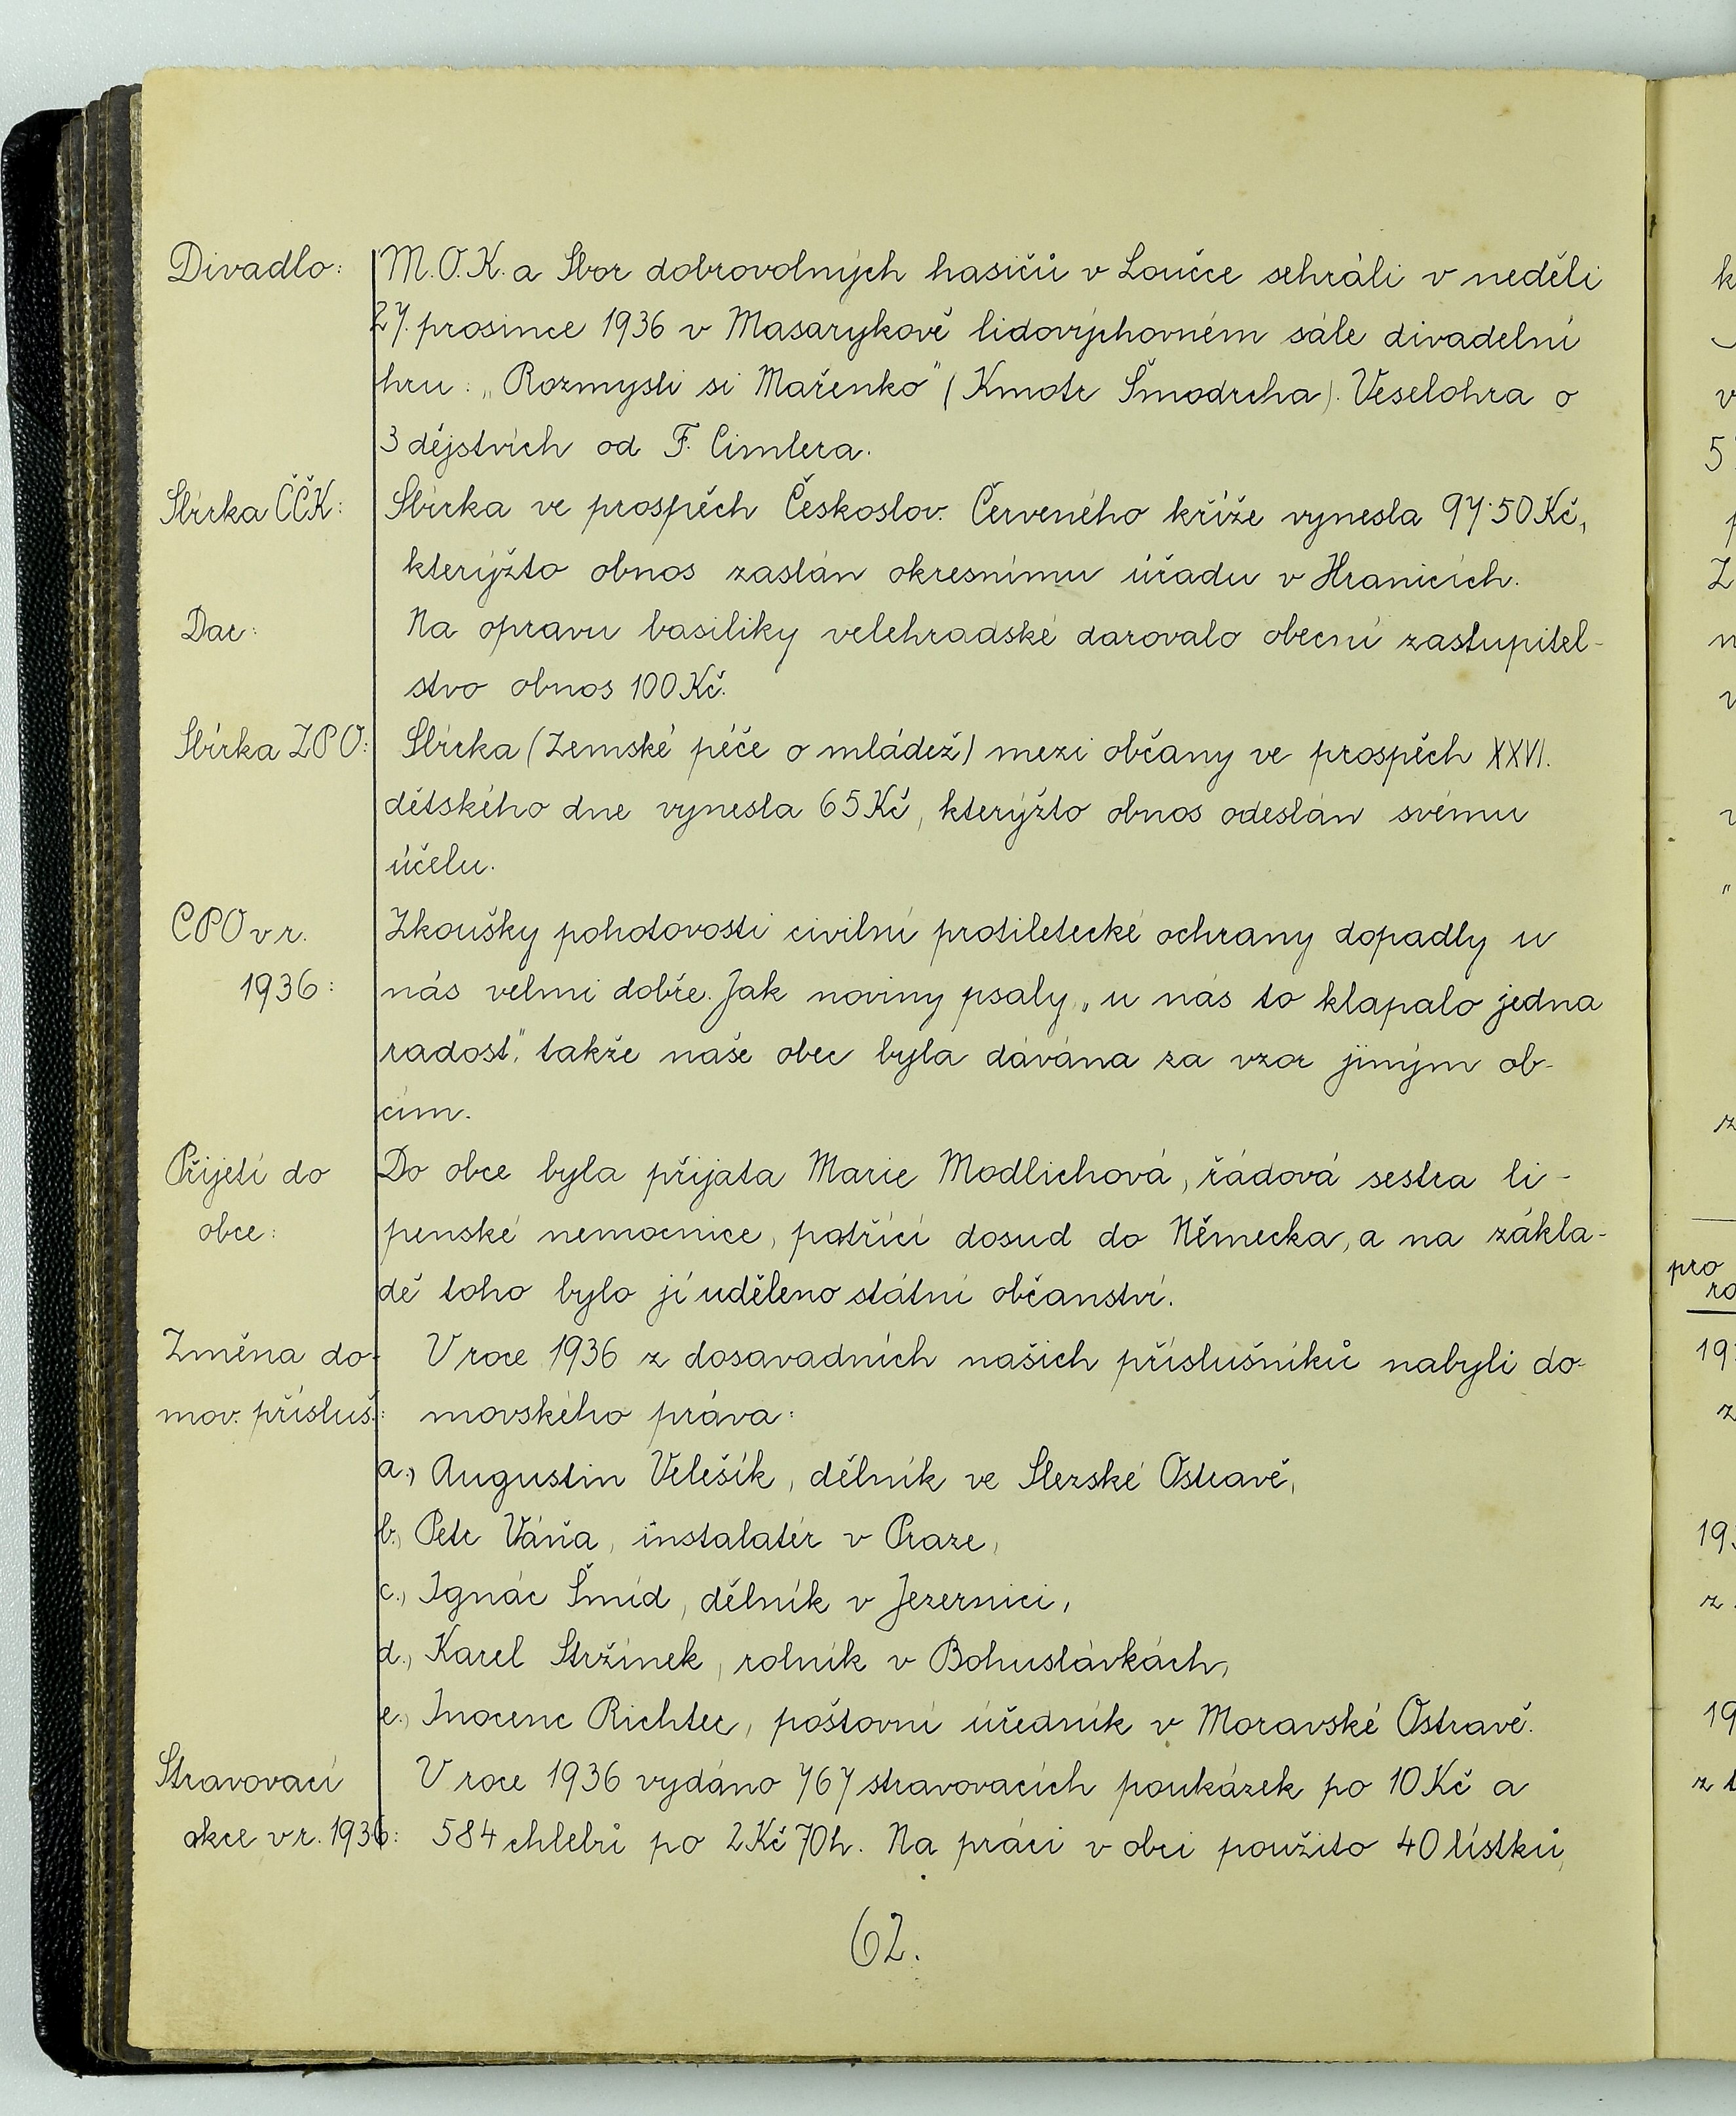 Divadlo: M.O.K. a Sbor dobrovolných hasičů v Loučce sehráli v neděli
27. prosince 1936 v Masarykově lidovýchovném sále divadelní
hru: „Rozmysli si Mařenko" (Kmotr Šmodrcha). Veselohra o
3 dějstvích od F. Cimlera.
Sbírka ČČK: Sbírka ve prospěch Českoslov. Červeného kříže vynesla 97·50 Kč,
kterýžto obnos zaslán okresnímu úřadu v Hranicích.
Dar: Na opravu basiliky velehradské darovalo obecní zastupitel-
stvo obnos 100 Kč.
Sbírka ZPO: Sbírka (Zemské péče o mládež) mezi občany ve prospěch XXVI.
dětského dne vynesla 65 Kč, kterýžto obnos odeslán svému
účelu.
CPO v r. Zkoušky pohotovosti civilní protiletecké ochrany dopadly u
1936: nás velmi dobře. Jak noviny psaly „u nás to klapalo jedna
radost", takže naše obec byla dávána za vzor jiným ob-
cím.
Přijetí do Do obce byla přijata Marie Modlichová, řádová sestra li-
obce: penské nemocnice, patřící dosud do Německa, a na zákla-
dě toho bylo jí uděleno státní občanství.
Změna do- V roce 1936 z dosavadních našich příslušníků nabyli do-
mov. přísluš.: movského práva:
a., Augustin Velešík, dělník ve Slezské Ostravě,
b., Petr Váňa, instalatér v Praze,
c., Ignác Šmíd, dělník v Jezernici,
d., Karel Stržínek, rolník v Bohuslávkách,
e., Inocenc Richter, poštovní úředník v Moravské Ostravě.
Stravovací V roce 1936 vydáno 767 stravovacích poukázek po 10 Kč a
akce v r. 1936: 584 chlebů po 2 Kč 70 h. Na práci v obci použito 40 lístků,
62.